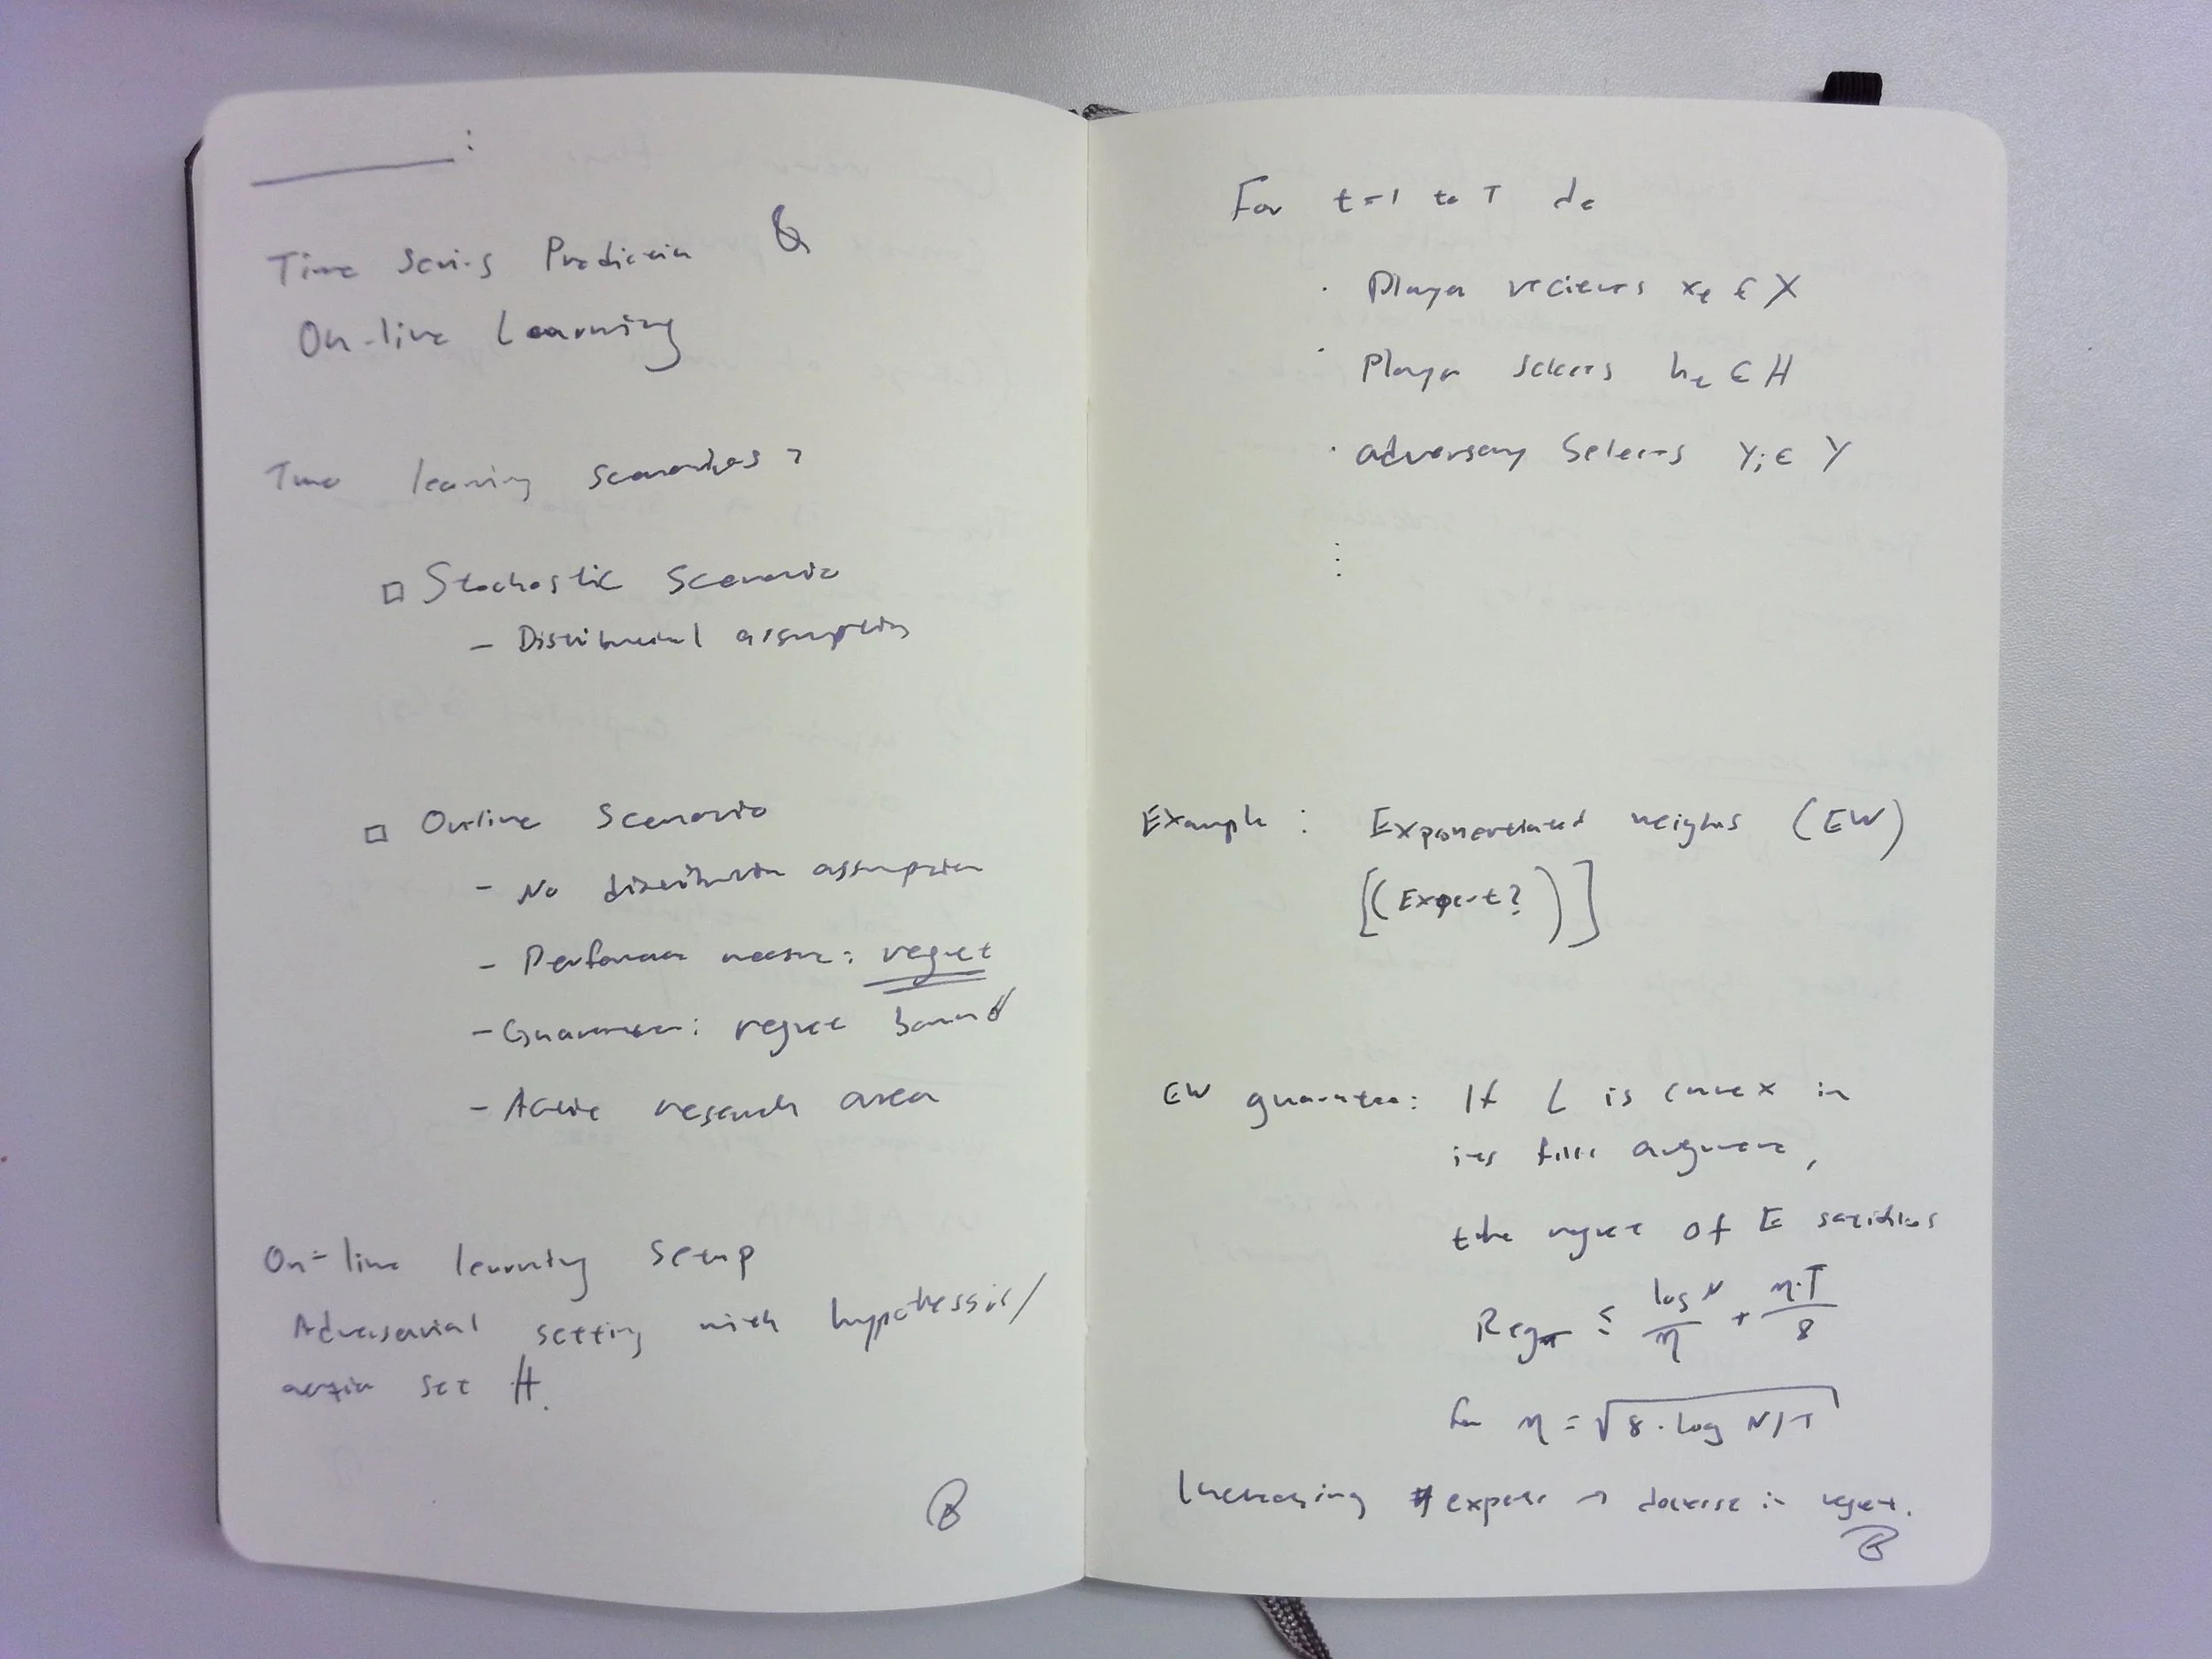 :
Time Series Prediction &
On-line Learning
Two learning scenarios
□ Stochastic Scenario
- Distributional assumption
□ On-line Scenario
- No distribution assumption
- Performance measure: regret
- Guarantee: regret bound
- Active research area
On-line learning Setup
Adversarial setting with hypothesis/
action set H.
For t=1 to T do
· Player recieves xₜ ∈ X
· Player selects hₜ ∈ H
· adversary Selects Yᵢ ∈ Y
⋮
Example : Exponentiated weights (EW)
[(Expert?)]
EW guarantee: If L is convex in
its first argument,
the regret of E satisfies
Reg_T ≤ log N / η + η·T / 8
for η = √(8 · log N/T)
Increasing # experts → decrease in regret.